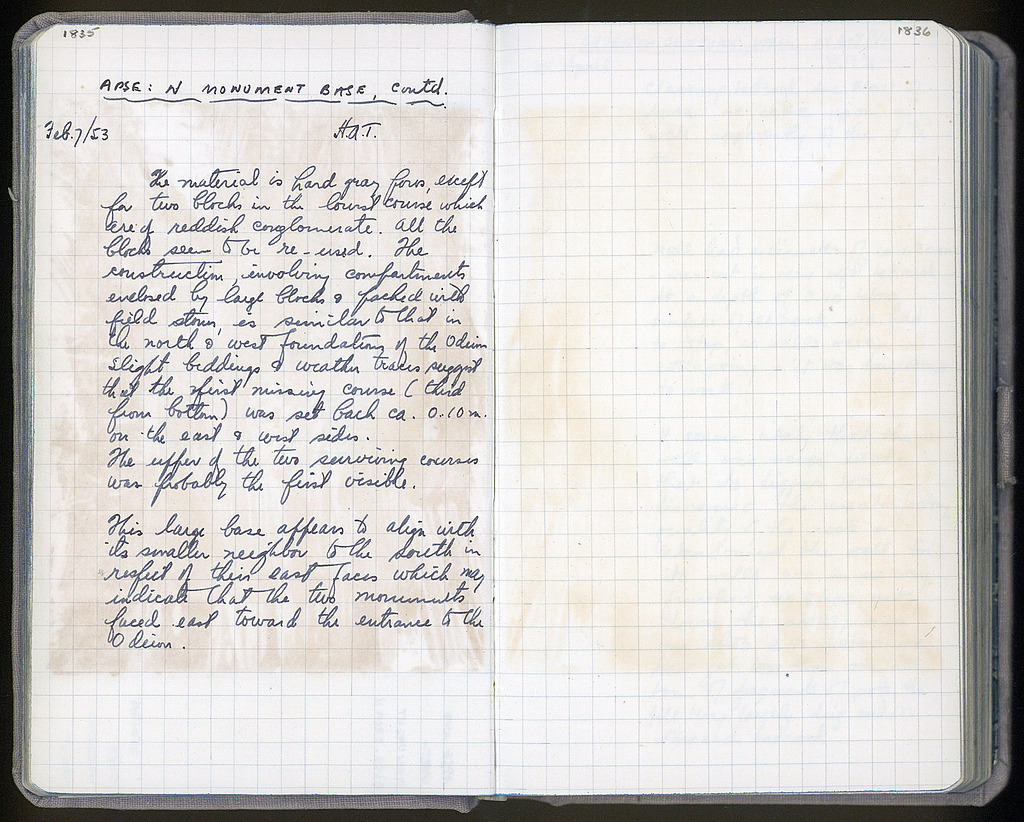 1835
1836
APSE: N MONUMENT BASE, contd.
Feb. 7/53
H.A.T.
The material is hard gray poros, except
for two blocks in the lowest course which
are of reddish conglomerate. All the
blocks seem to be re-used. The
construction, involving compartments
enclosed by large blocks & packed with
field stones, is similar to that in
the north & west foundations of the Odeion
Slight beddings & weather traces suggest
that the first missing course (third
from bottom) was set back ca. 0.10 m.
on the east & west sides.
The upper of the two surviving courses
was probably the first visible.
This large base appears to align with
its smaller neighbor to the south in
respect of their east faces which may
indicate that the two monuments
faced east toward the entrance to the
Odeion.